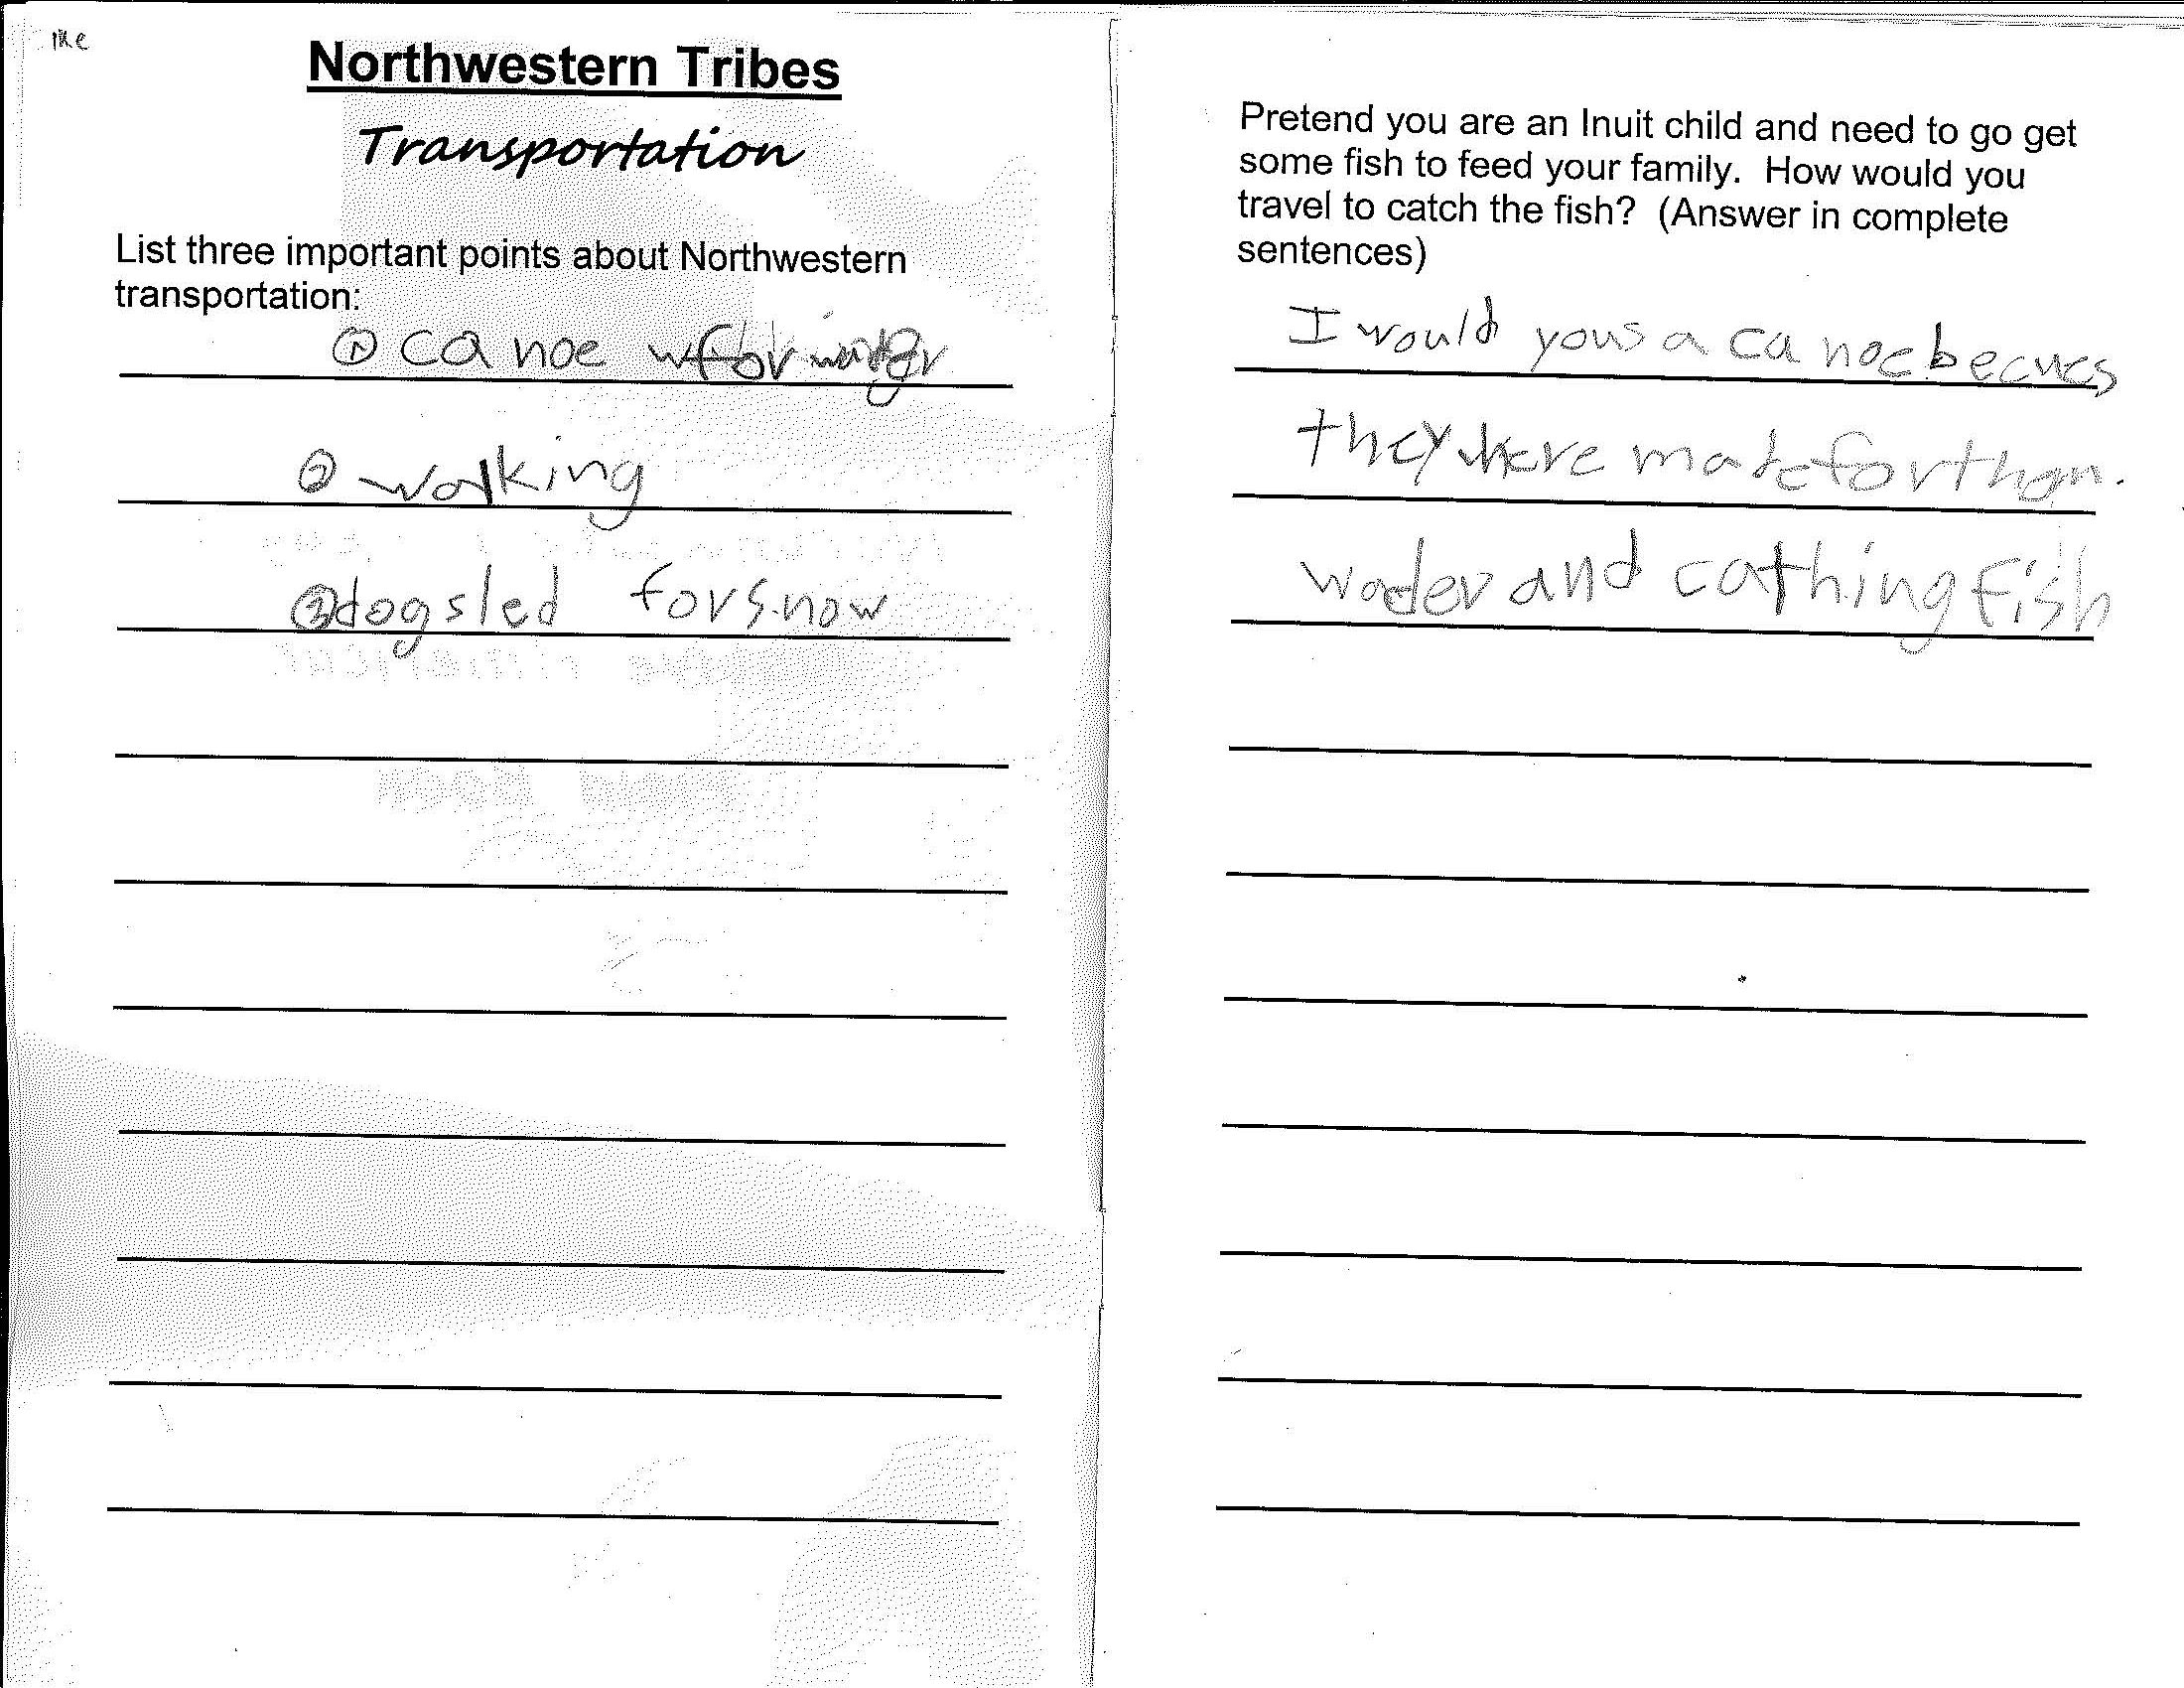 Northwestern Tribes
Transportation
List three important points about Northwestern
transportation:
① canoe for water
② walking
③ dogsled for snow
Pretend you are an Inuit child and need to go get
some fish to feed your family. How would you
travel to catch the fish? (Answer in complete
sentences)
I would yous a canoe becues
they where mate for
woder and cathing fish